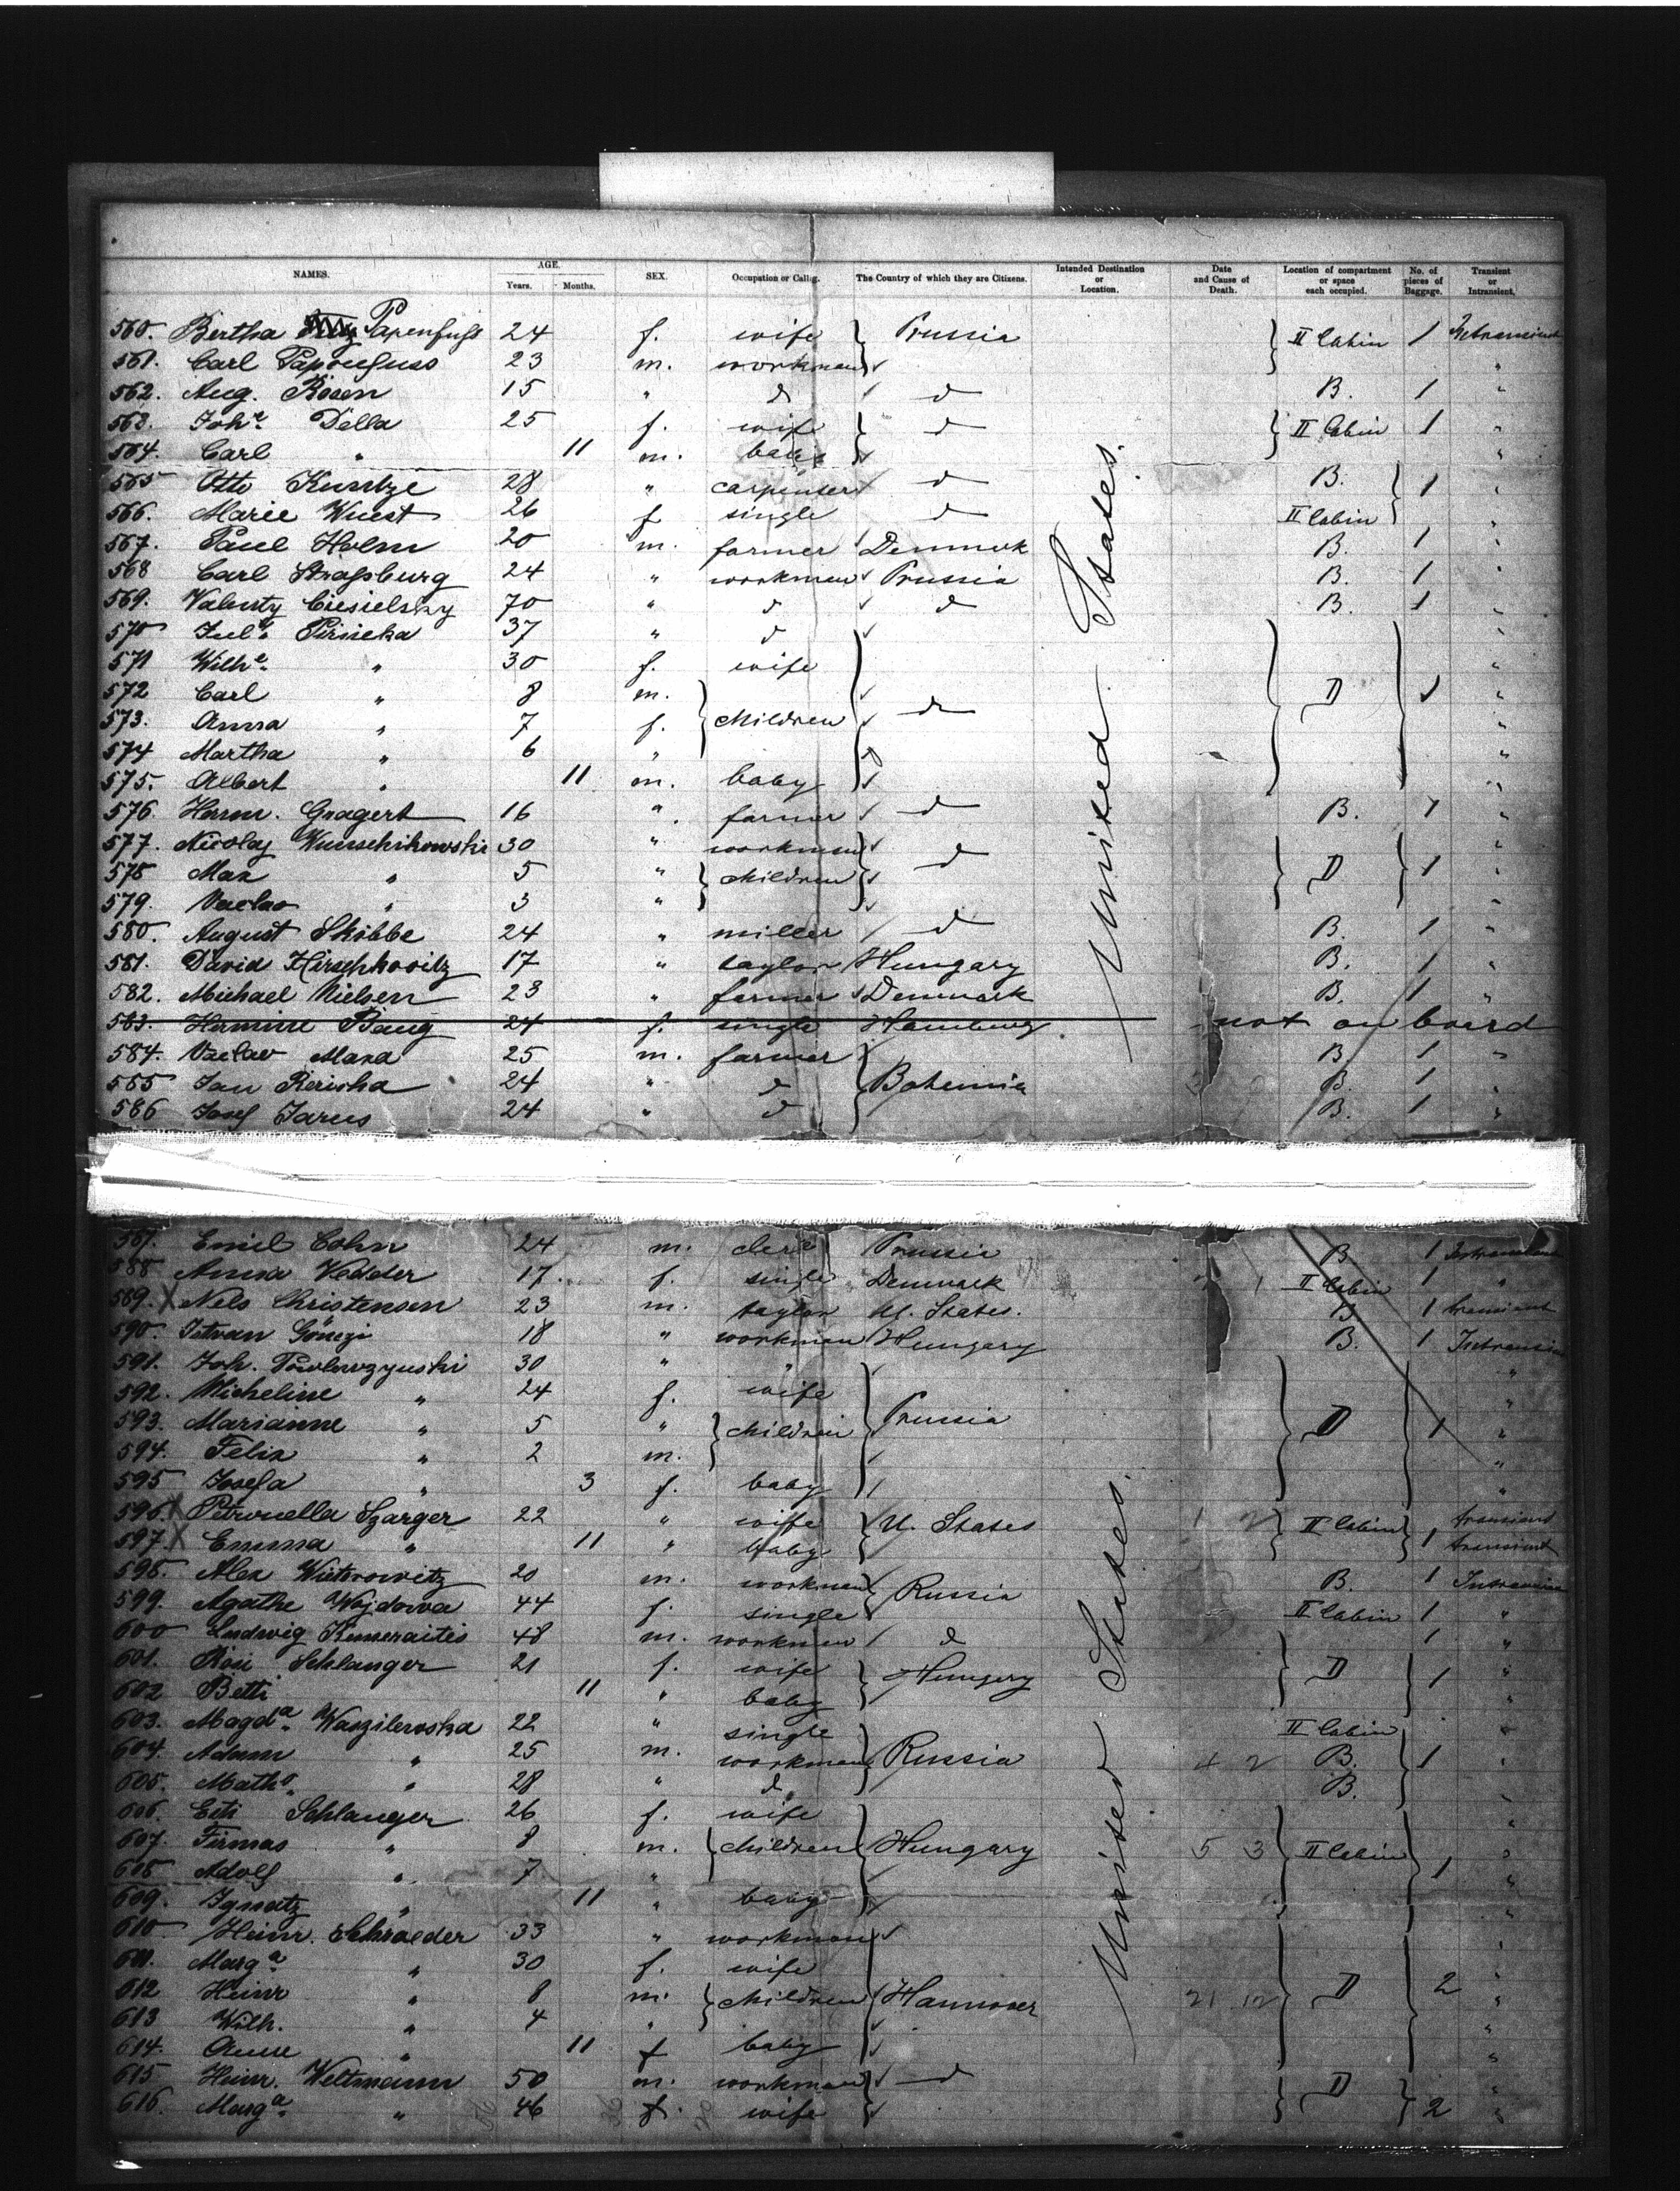 NAMES. AGE. Years. Months. SEX. Occupation or Callig. The Country of which they are Citizens. Intended Destination or Location. Date and Cause of Death. Location of compartment or space each occupied. No. of pieces of Baggage. Transient or Intransient.
560. Bertha Papenfuss 24 f. wife Prussia II Cabin 1 Intransient
561. Carl Papenfuss 23 m. workman "
562. Aug. Rosen 15 " d d B. 1 "
563. Joh.e Della 25 f. wife d II Cabin 1 "
564. Carl " 11 m. baby "
565 Otto Kuntze 28 " carpenter d B. 1 "
566. Marie Wuest 26 f single d II Cabin "
567. Paul Holm 20 m. farmer Denmark B. 1 "
568 Carl Strassburg 24 " workman Prussia B. 1 "
569. Valenty Ciesielsky 70 " d d B. 1 "
570 Jul.s Pirnieka 37 " d "
571 Wilh.e " 30 f. wife "
572 Carl " 8 m. children d D 1 "
573. Anna " 7 f. "
574 Martha " 6 " "
575. Albert " 11 m. baby "
576. Herm. Gragert 16 " farmer d B. 1 "
577. Nicolay Wunschikowski 30 " workman d "
578 Max " 5 " children D 1 "
579. Vaclav " 3 " "
580. August Skibbe 24 " miller d B. 1 "
581. David Hirschkovitz 17 " taylor Hungary B. 1 "
582. Michael Nielsen 23 " farmer Denmark B. 1 "
583. Hermine Baug 24 f. single Hamburg not on board
584. Vaclav Mara 25 m. farmer B. 1 "
585 Jan Rericha 24 " d Bohemia B. 1 "
586 Josef Jarus 24 " d B. 1 "
United States.
587. Emil Cohn 24 m. clerc Prussia B 1 Intransient
588 Anna Vedder 17. f. single Denmark II Cabin 1 "
589. X Nels Christensen 23 m. taylor U. States. B. 1 transient
590. Istvan Gönczi 18 " workman Hungary B. 1 Intransient
591. Joh. Powlowzynski 30 " " "
592. Micheline " 24 f. wife "
593. Marianne " 5 " children Prussia D 1 "
594. Felix " 2 m. "
595 Josefa " 3 f. baby "
596. X Petronella Szarger 22 " wife U. States 1 2 II Cabin transient
597. X Emma " 11 " baby 1 transient
598. Alex Wietrowitz 20 m. workman Russia B. 1 Intransient
599. Agathe Wojdowa 44 f. single II Cabin 1 "
600 Ludwig Kumeraitis 48 m. workman d 1 "
601. Rosi Schlanger 21 f. wife Hungary D 1 "
602 Betti 11 " baby "
603. Magd.a Waszilewska 22 " single II Cabin "
604. Adam " 25 m. workman Russia 4 2 B. 1 "
605. Math.s " 28 " d B. "
606. Eti Schlanger 26 f. wife "
607. Firmas " 8 m. children Hungary 5 3 II Cabin "
608 Adolf " 7 " 1 "
609. Ignatz " 11 " baby "
610 Heinr. Schraeder 33 " workman "
611. Marg.a " 30 f. wife "
612 Heinr " 8 m. children Hannover 21 12 D 2 "
613 Wilh. " 4 " "
614. Anne " 11 f baby "
615 Heinr. Weltmann 50 m. workman d D "
616. Marg.a " 46 f. wife 2 "
United States.